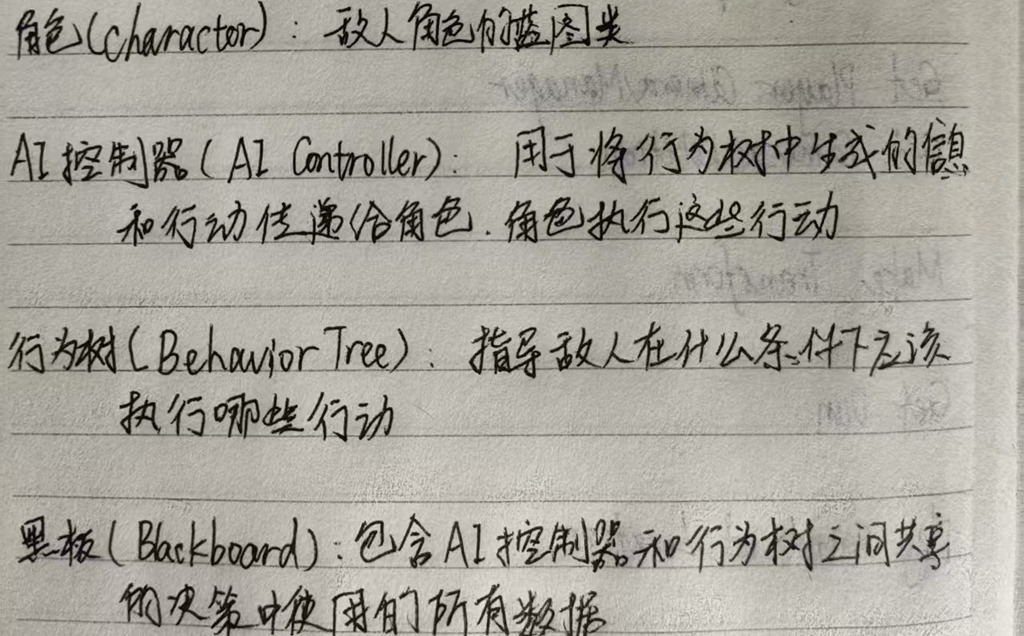 角色(charactor): 敌人角色的蓝图类
AI控制器(AI Controller): 用于将行为树中生成的信息
和行动传递给角色.角色执行这些行动
行为树(Behavior Tree): 指导敌人在什么条件下应该
执行哪些行动
黑板(Blackboard): 包含AI控制器和行为树之间共享
的决策中使用的所有数据